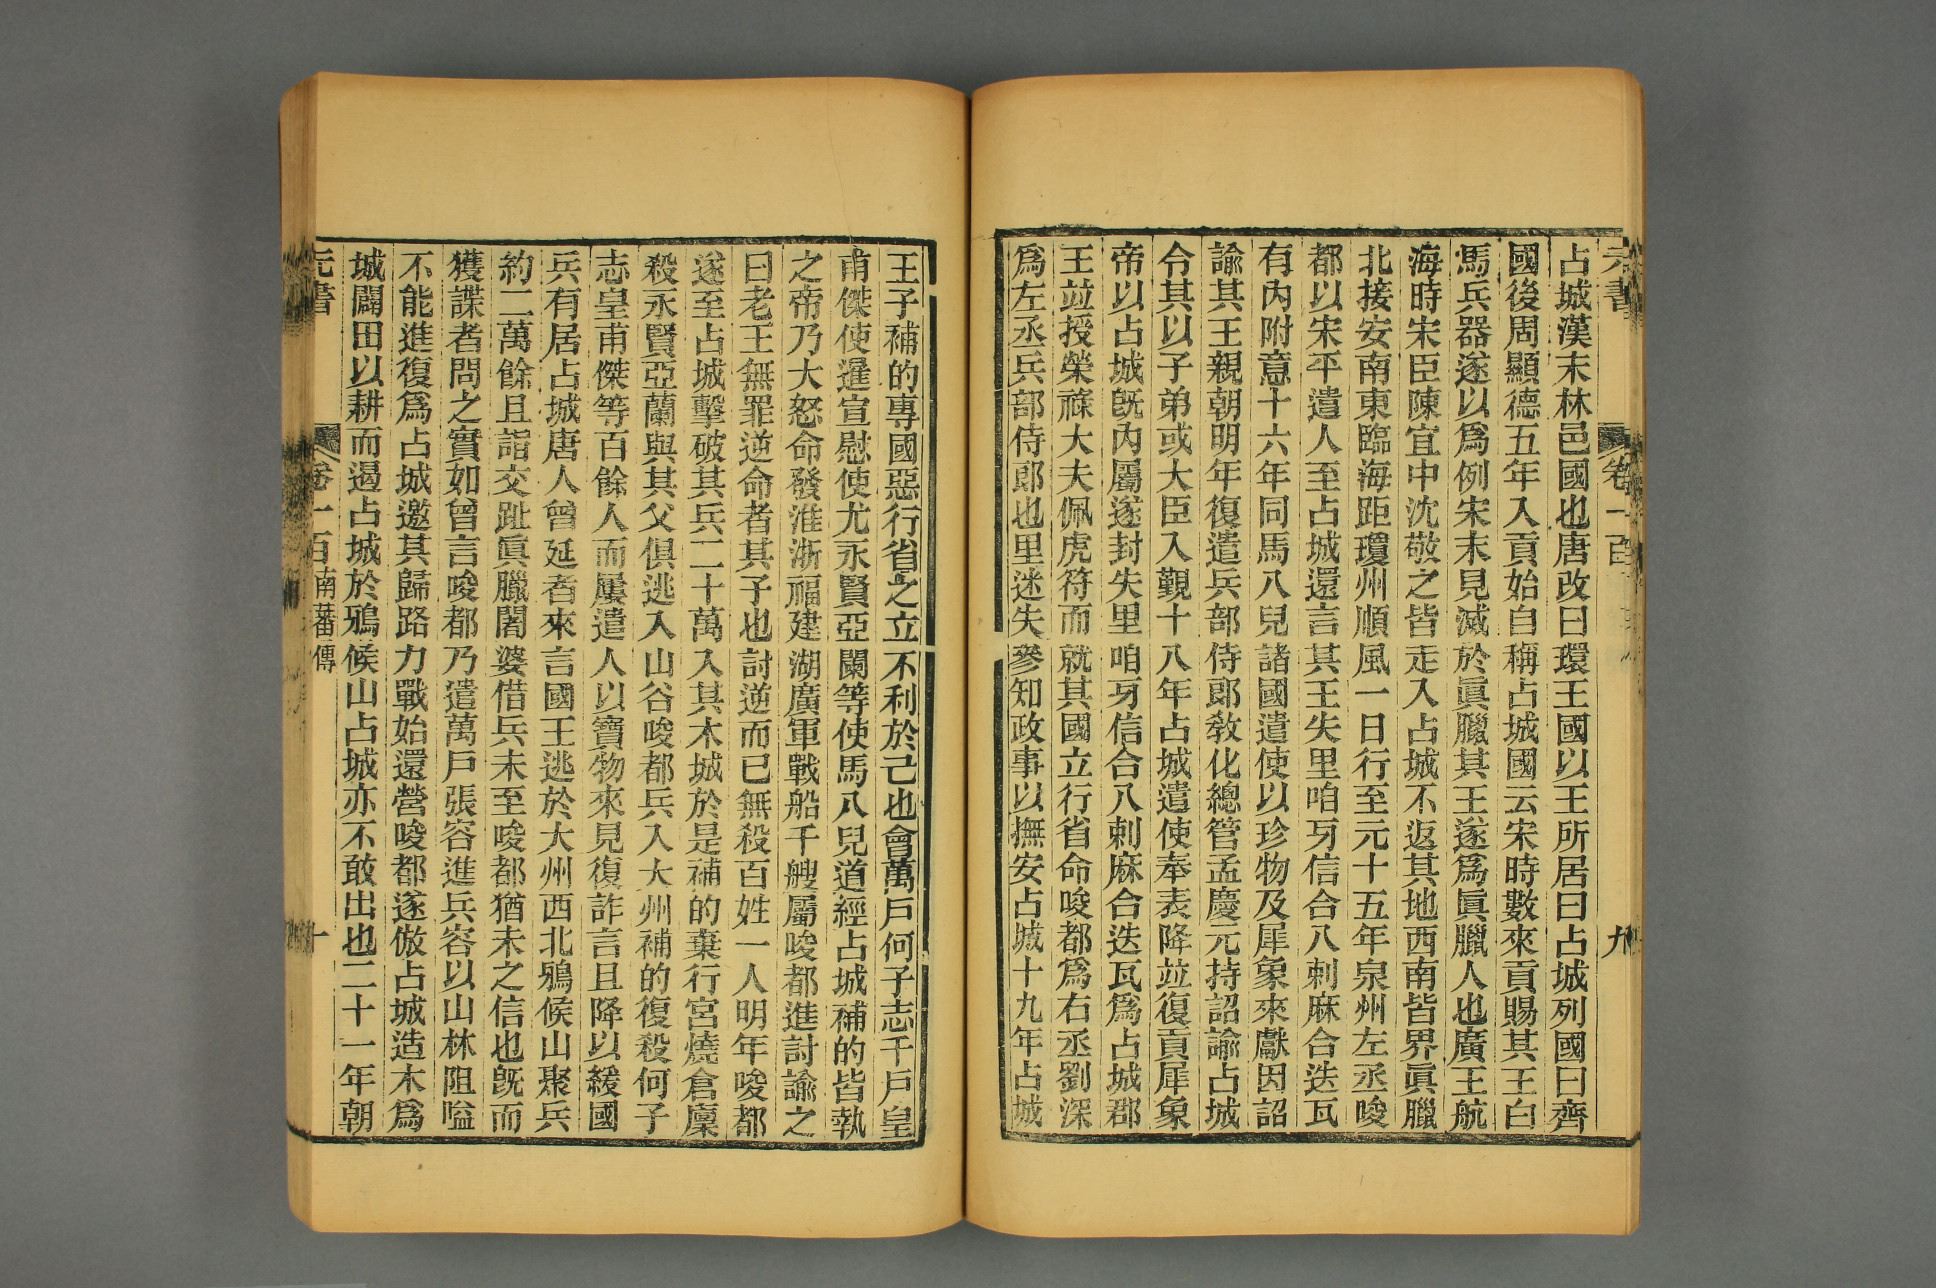 元書
卷一百
九
占城漢末林邑國也唐改曰環王國以王所居曰占城列國曰齊
國後周顯德五年入貢始自稱占城國云宋時數來貢賜其王白
馬兵器遂以爲例宋末見滅於眞臘其王遂爲眞臘人也廣王航
海時宋臣陳宜中沈敬之皆走入占城不返其地西南皆界眞臘
北接安南東臨海距瓊州順風一日行至元十五年泉州左丞唆
都以宋平遣人至占城還言其王失里咱牙信合八剌麻合迭瓦
有內附意十六年同馬八兒諸國遣使以珍物及犀象來獻因詔
諭其王親朝明年復遣兵部侍郎敎化總管孟慶元持詔諭占城
令其以子弟或大臣入覲十八年占城遣使奉表降竝復貢犀象
帝以占城旣內屬遂封失里咱牙信合八剌麻合迭瓦爲占城郡
王竝授榮祿大夫佩虎符而就其國立行省命唆都爲右丞劉深
爲左丞兵部侍郎也里迷失參知政事以撫安占城十九年占城
王子補的專國惡行省之立不利於己也會萬戶何子志千戶皇
甫傑使暹宣慰使尤永賢亞闌等使馬八兒道經占城補的皆執
之帝乃大怒命發淮浙福建湖廣軍戰船千艘屬唆都進討諭之
曰老王無罪逆命者其子也討逆而已無殺百姓一人明年唆都
遂至占城擊破其兵二十萬入其木城於是補的棄行宮燒倉廩
殺永賢亞蘭與其父俱逃入山谷唆都兵入大州補的復殺何子
志皇甫傑等百餘人而屢遣人以寶物來見復詐言且降以緩國
兵有居占城唐人曾延者來言國王逃於大州西北鴉候山聚兵
約二萬餘且詣交趾眞臘闍婆借兵未至唆都猶未之信也旣而
獲諜者問之實如曾言唆都乃遣萬戶張容進兵容以山林阻隘
不能進復爲占城邀其歸路力戰始還營唆都遂倣占城造木爲
城闢田以耕而遏占城於鴉候山占城亦不敢出也二十一年朝
元書
卷一百南蕃傳
十